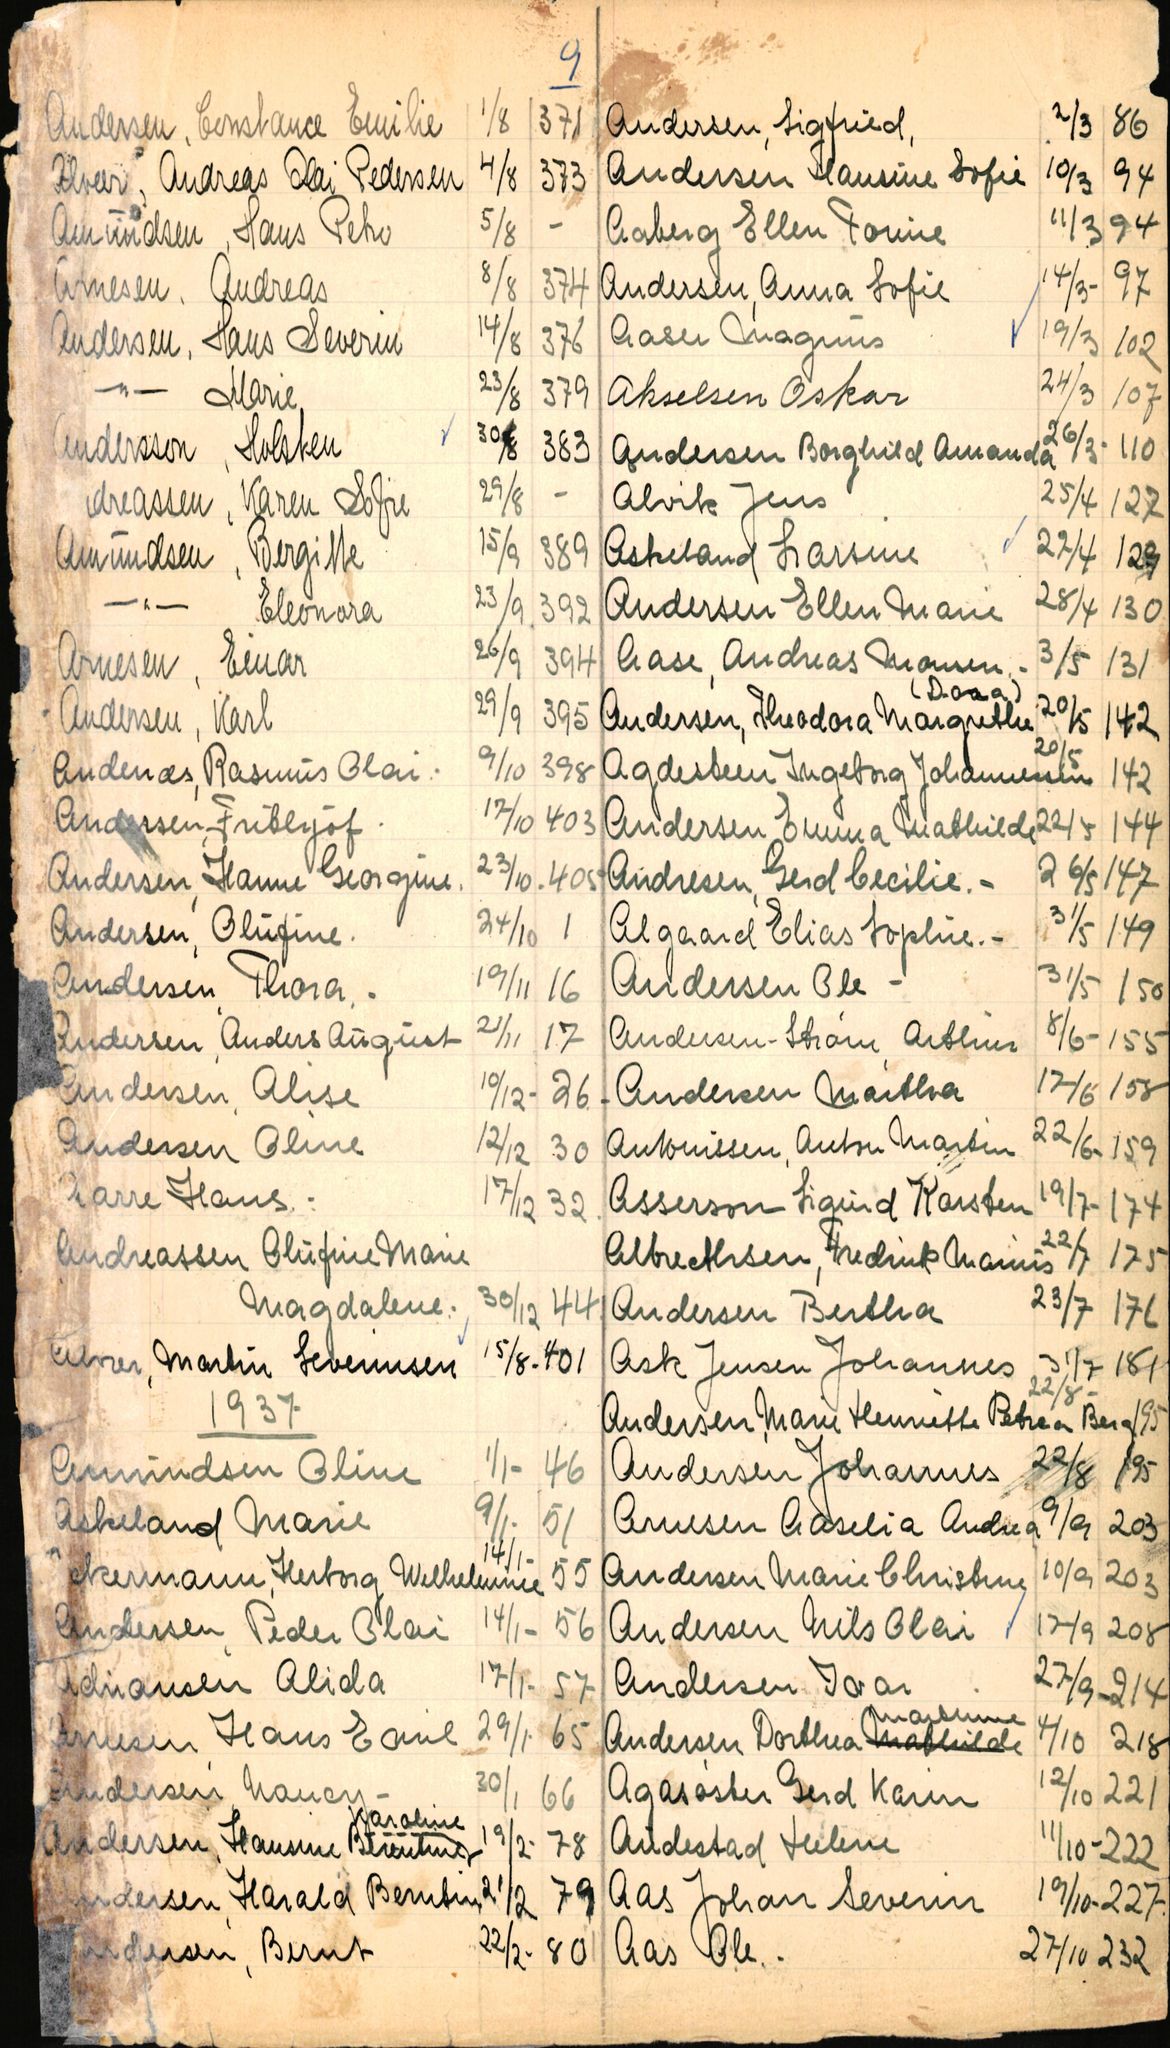 9
Andersen, Constance Emilie 1/8 371
Alvær, Andreas Olai Pedersen 4/8 373
Amundsen, Hans Petro 5/8 -
Arnesen, Andreas 8/8 374
Andersen, Hans Severin 14/8 376
-"- Marie 23/8 379
Andersson, Holsken 30/8 383
dreassen, Karen Sofie 29/8 -
Amundsen, Bergitte 15/9 389
-"- Eleonora 23/9 392
Arnesen, Einar 26/9 394
Andersen, Karl 29/9 395
Andenæs, Rasmus Olai. 9/10 398
Andersen, Frithjof. 17/10 403
Andersen, Hanne Georgine. 23/10. 405
Andersen, Olufine. 24/10 1
Andersen, Thora. - 19/11 16
Andersen, Anders August 21/11 17
Andersen, Alise 10/12- 26
Andersen Oline 12/12 30
Aarre Hans. - 17/12 32
Andreassen Olufine Marie
Magdalene. 30/12 44
Martin Severinsen 15/8-401
1937
Amundsen Oline 1/1- 46
Askeland Marie 9/1. 51
14/1-
Ackermann, Herborg Wilhelmine 55
Andersen, Peder Olai 14/1- 56
Adriansen Alida 17/1- 57
Arnesen Hans Emil 29/1. 65
Andersen Nancy- 30/1 66
Karoline
Andersen, Hansine Berentine 19/2- 78
Andersen, Harald Berntin 21/2 79
Andersen, Bernt 22/2- 80
Andersen, Sigfried, 2/3 86
Andersen Hansine Sofie 10/3 94
Aaberg Ellen Tonine 11/3 94
Andersen, Anna Sofie 14/3- 97
Aasen Magnus 19/3 102
Akselsen Oskar 24/3 107
Andersen Borghild Amanda 26/3- 110
Alvik Jens 25/4 127
Askeland Larsine 27/4 129
Andersen Ellen Marie 28/4 130
Aase, Andreas Monsen. - 3/5 131
(Dora)
Andersen, Theodora Margrethe 20/5 142
20/5
Agdesteen Ingeborg Johannessen 142
Andersen, Emma Mathilde 22/5 144
Andresen, Gerd Cecilie. - 26/5 147
Algaard Elias Sophie. - 31/5 149
Andersen Ole - 31/5 150
Andersen-Strøm, Arthur 8/6- 155
Andersen Martha 17/6 158
Antonissen, Anton Martin 22/6- 159
Asserson Sigurd Karsten 19/7- 174
Albrechtsen, Fredrik Marius 22/7 175
Andersen Bertha 23/7 176
Ask Jensen Johannes 31/7 181
22/8-
Andersen, Marie Henriette Petrea Berg 195
Andersen Johannes 22/8 195
Arnesen Aaselia Andrea 9/9 203
Andersen Marie Christine 10/9 203
Andersen Nils Olai 17/9 208
Andersen Ivar 27/9-214
Martine
Andersen Dorthea Mathilde 4/10 218
Agasøster Gerd Karin 12/10 221
Andestad Helene 11/10-222
Aas Johan Severin 19/10-227.
Aas Ole. . 27/10 232